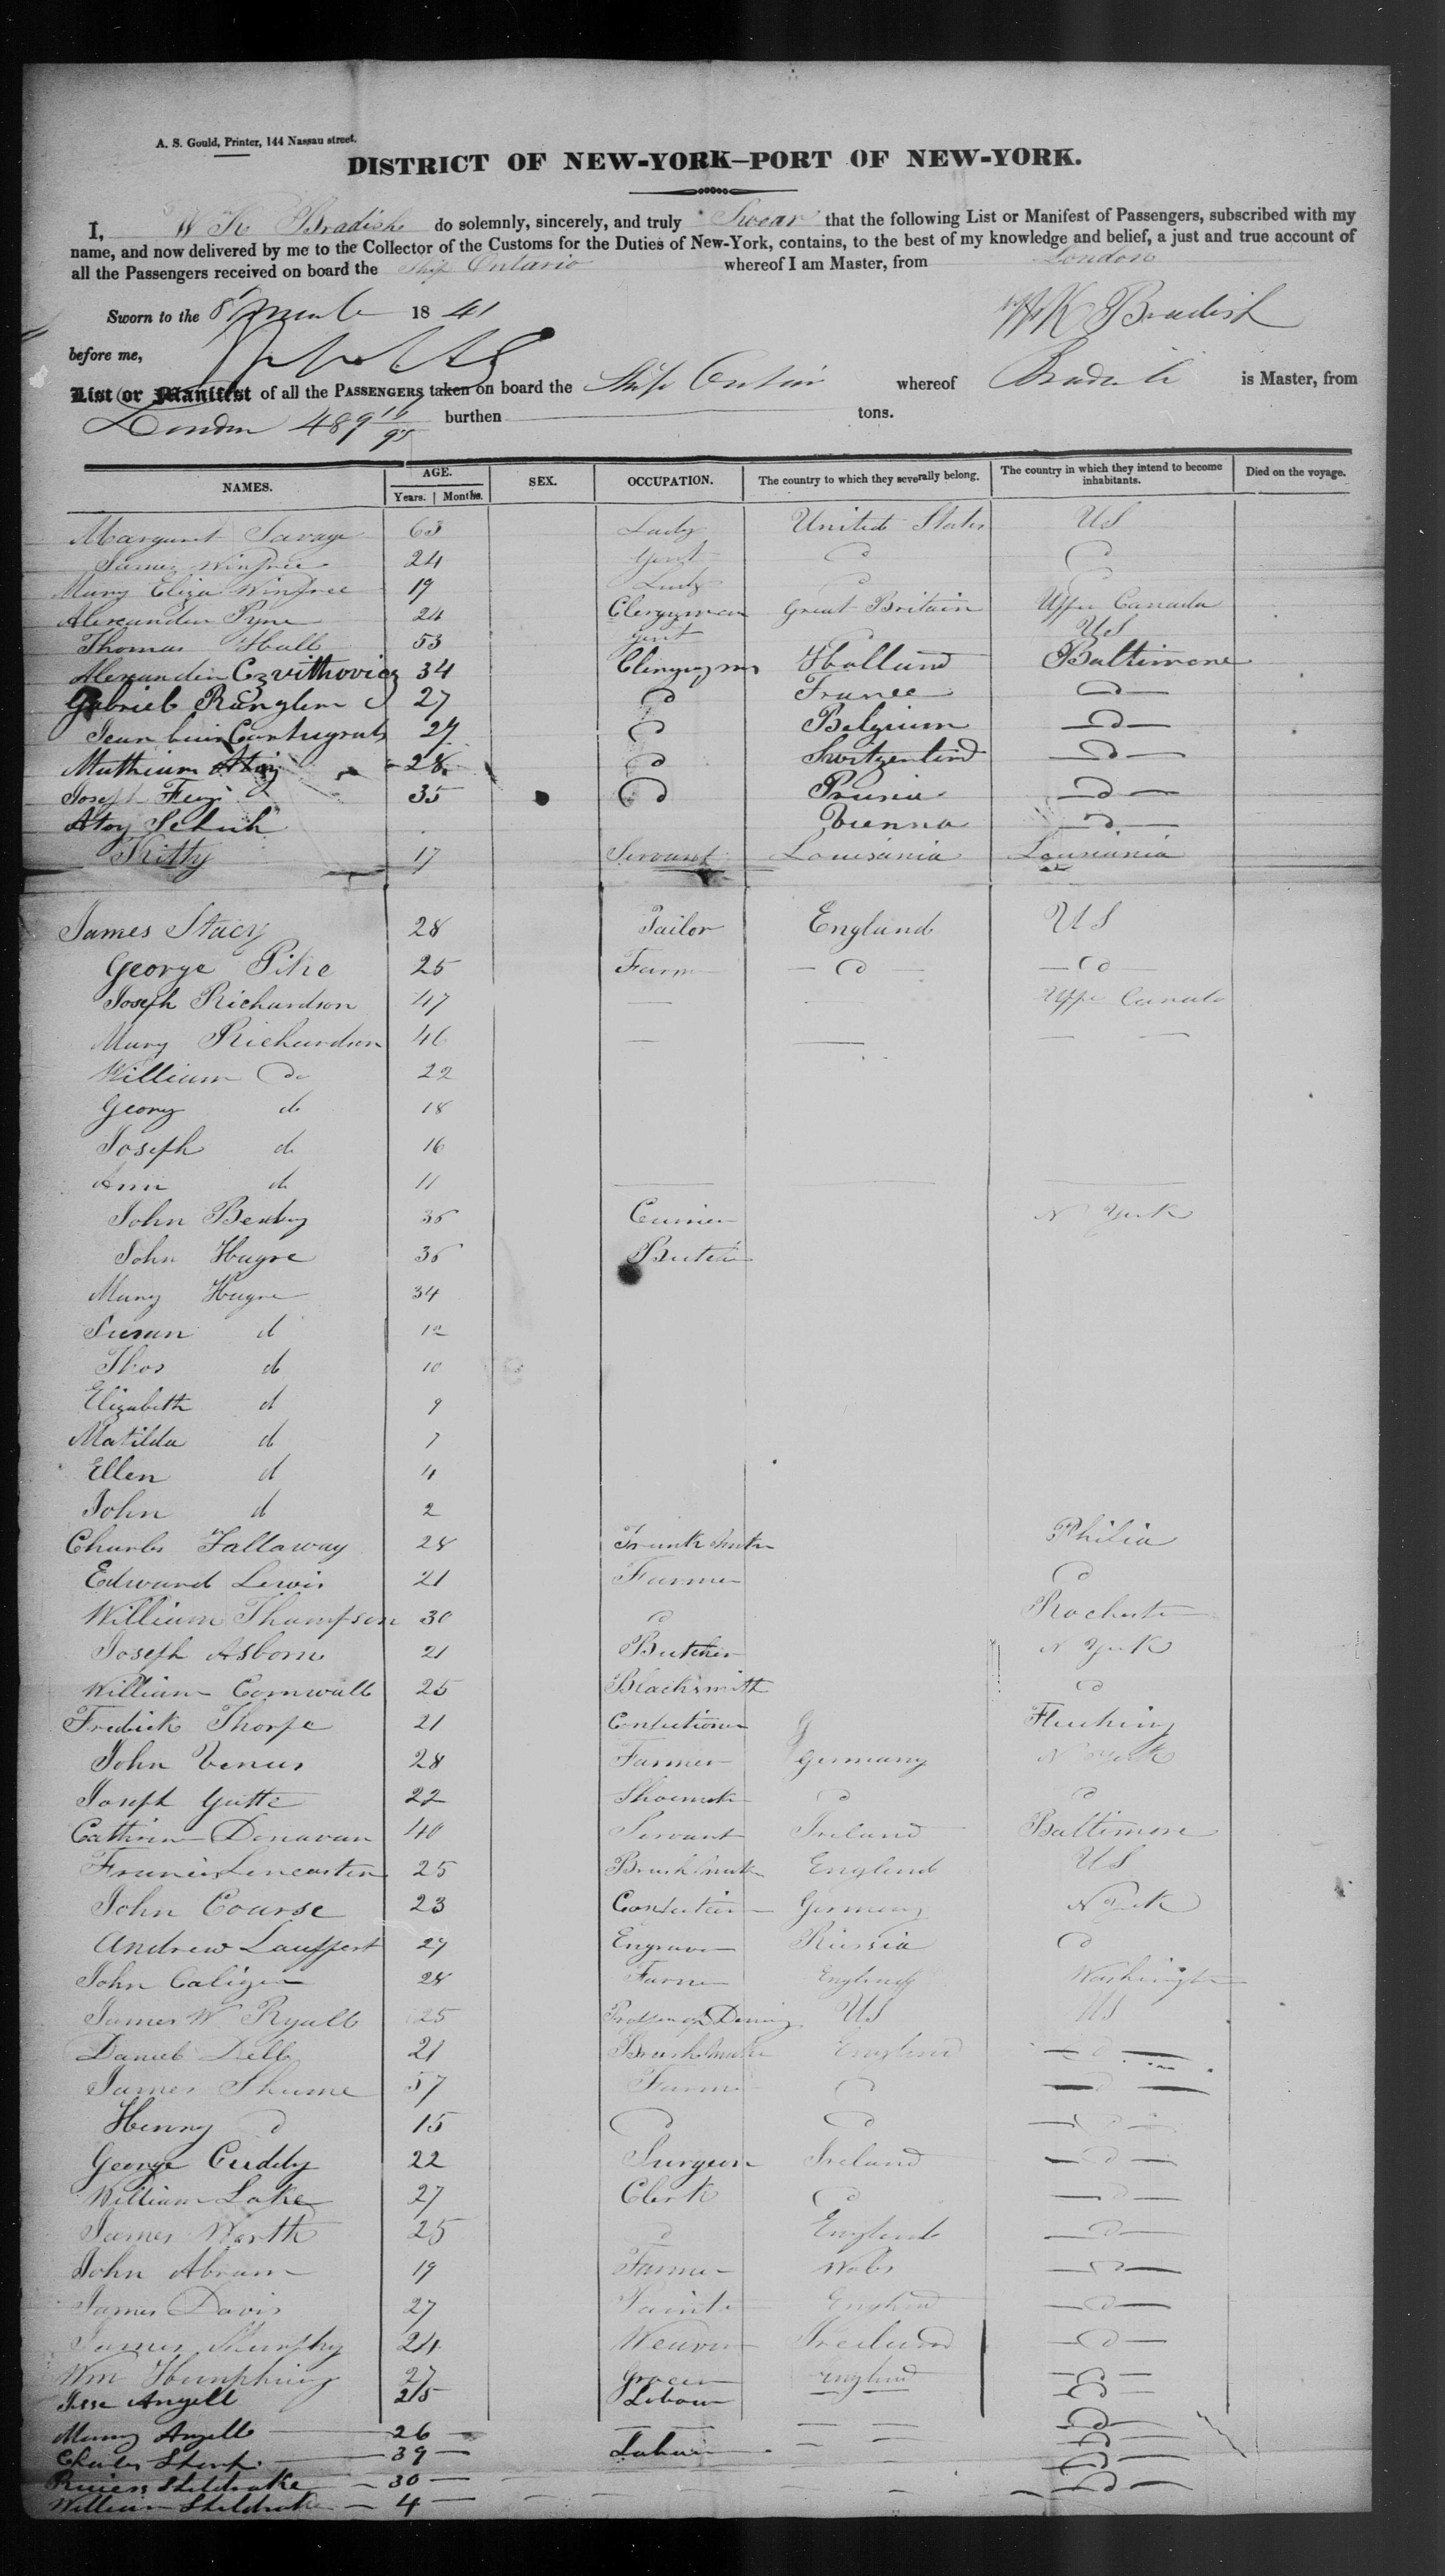 A. S. Gould, Printer, 144 Nassau street.
DISTRICT OF NEW-YORK–PORT OF NEW-YORK.
I, W K Bradish do solemnly, sincerely, and truly Swear that the following List or Manifest of Passengers, subscribed with my
name, and now delivered by me to the Collector of the Customs for the Duties of New-York, contains, to the best of my knowledge and belief, a just and true account of
all the Passengers received on board the Ship Ontario whereof I am Master, from London
Sworn to the 8 1841 W K Bradish
before me,
List or Manifest of all the PASSENGERS taken on board the Ship Ontario whereof Bradish is Master, from
London 489 burthen tons.
NAMES. AGE. Years. | Months. SEX. OCCUPATION. The country to which they severally belong. The country in which they intend to become inhabitants. Died on the voyage.
Margaret Savage 63 Lady United States US
James Winfree 24 Gent d d
Mary Eliza Winfree 19 Lady d d
Alexander Pyne 24 Clergyman Great Britain Upper Canada
Thomas Hall 53 Gent US
Czvithovicz 34 Holland Baltimore
Gabriel 27 d France d
Jean 27 d Belgium d
28 d d
Joseph 35 d Prusia d
Vienna d
Kitty 17 Servant Louisiania Louisiania
James Stacy 28 Tailor England US
George Pike 25 Farm d d
Joseph Richardson 47 Canada
Mary Richardson 46
William do 22
Georg do 18
Joseph do 16
Ann do 11
John 36 N York
John Hayre 36
Mary Hayre 34
Susan d 12
Thos do 10
Elizabeth d 9
Matilda d 7
Ellen d 4
John d 2
Charles Fallaway 28 Philia
Edward Lewis 21 Farmer d
William Thompson 30 d Rochester
Joseph Asborne 21 Butcher N York
William Cornwall 25 Blacksmith d
Fredick Thorpe 21 Flushing
John Venus 28 Farmer Germany N York
Joseph Gutte 22 Shoemak d d
Donavan 40 Servant Ireland Baltimore
Francis Lencaster 25 England US
John Course 23 Germany N York
Andrew Lauffert 27 Engraver Russia d
John 28 Farmer England Washington
James W Ryall 25 US US
Daniel Dell 21 England d
James Shume 57 Farmer d d
Henry d 15 d d d
George Cuddy 22 Surgeon Ireland d
William Lake 27 Clerk d d
James Worth 25 d England d
John Abram 19 Farmer d
James Davis 27 England d
James Murphy 24 Weaver Ireland d
Wm 27 Grocer England d
Jesse Angell 25 d
Angell 26 d
39 d
Sheldrake 30 d
William Sheldrake 4 d